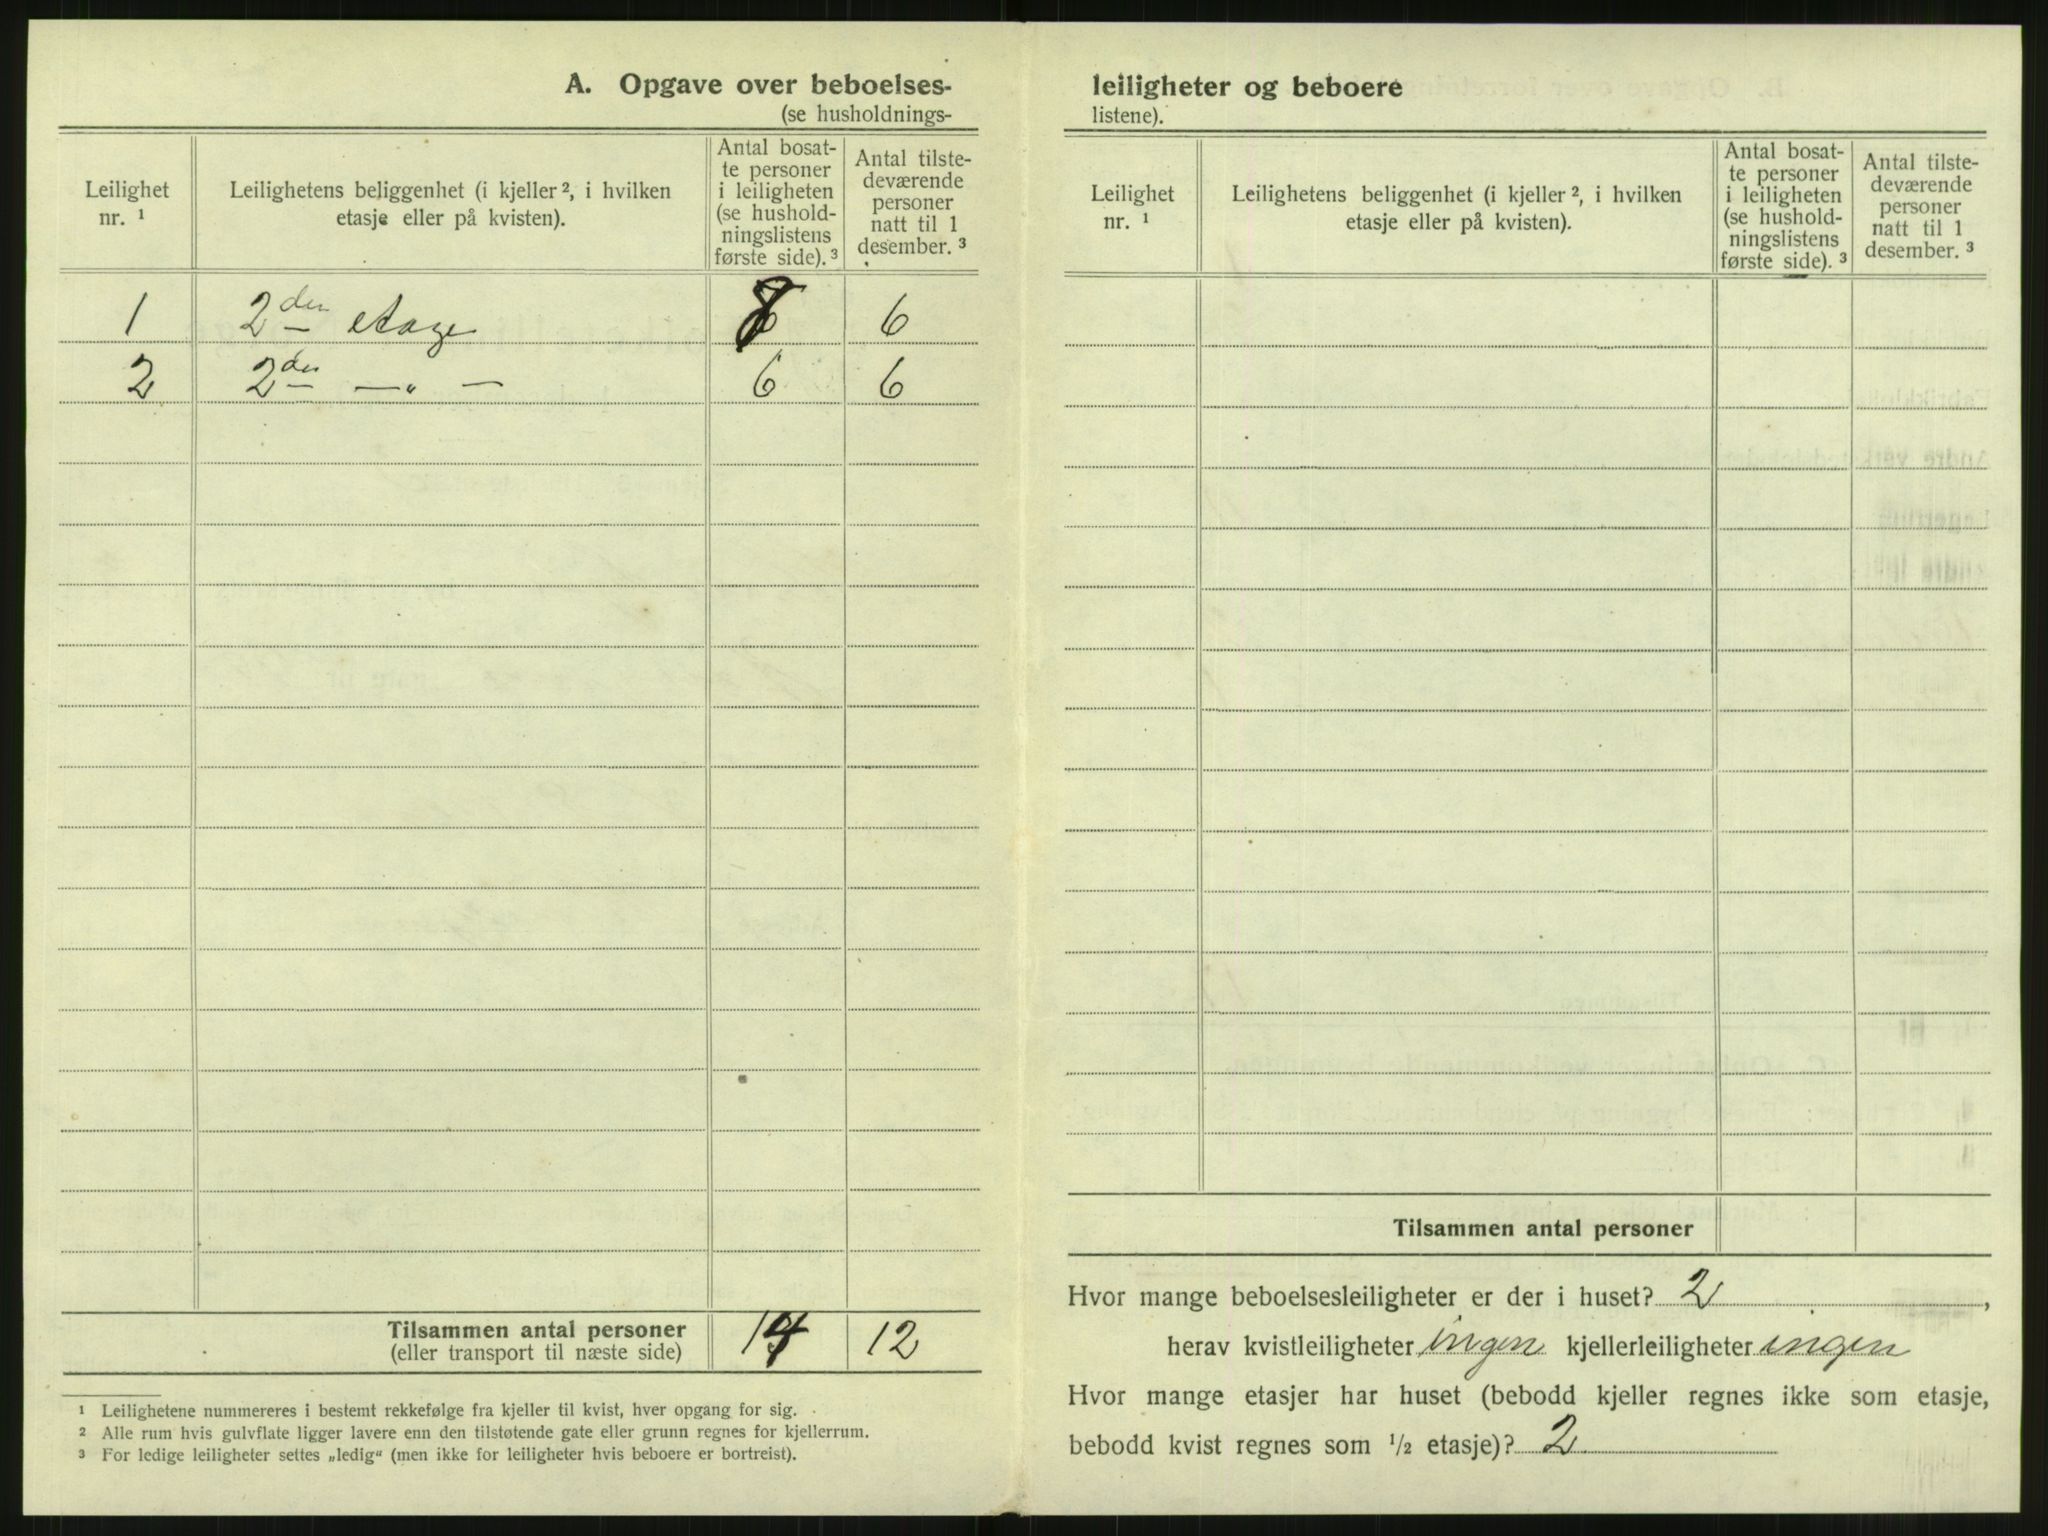 A. Opgave over beboelses-
(se husholdnings-
Leilighet nr. ¹
Leilighetens beliggenhet (i kjeller ², i hvilken etasje eller på kvisten).
Antal bosat-
te personer
i leiligheten
(se hushold-
ningslistens
første side). ³
Antal tilste-
deværende
personer
natt til 1
desember. ³
1 2den etage 8 6
2 2den — „ — 6 6
Tilsammen antal personer 14 12
(eller transport til næste side)
¹ Leilighetene nummereres i bestemt rekkefølge fra kjeller til kvist, hver opgang for sig.
² Alle rum hvis gulvflate ligger lavere enn den tilstøtende gate eller grunn regnes for kjellerrum.
³ For ledige leiligheter settes „ledig“ (men ikke for leiligheter hvis beboere er bortreist).
leiligheter og beboere
listene).
Leilighet nr. ¹
Leilighetens beliggenhet (i kjeller ², i hvilken etasje eller på kvisten).
Antal bosat-
te personer
i leiligheten
(se hushold-
ningslistens
første side). ³
Antal tilste-
deværende
personer
natt til 1
desember. ³
Tilsammen antal personer
Hvor mange beboelsesleiligheter er der i huset? 2,
herav kvistleiligheter ingen kjellerleiligheter ingen
Hvor mange etasjer har huset (bebodd kjeller regnes ikke som etasje,
bebodd kvist regnes som ½ etasje)? 2